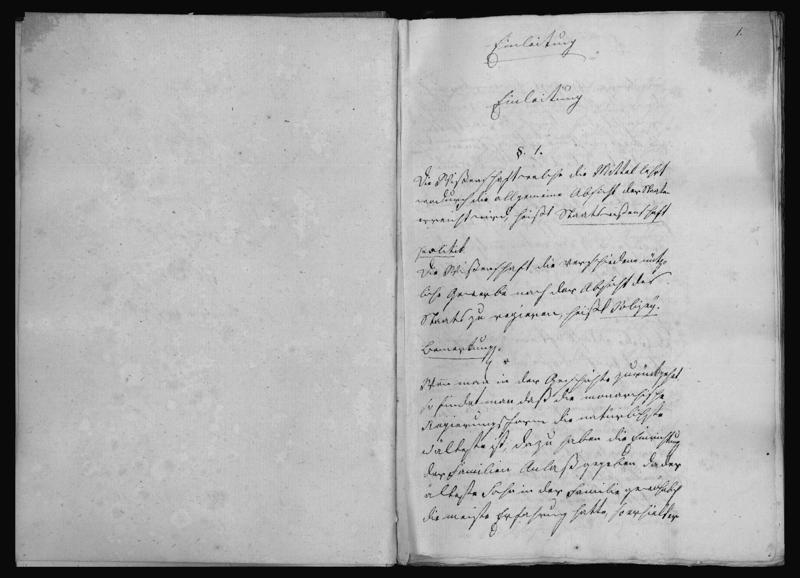 1.
Einleitung
Einleitung
§. 1.
Die Wißenschaft welche die Mittel lehrt
wodurch die allgemeine Absicht der Staaten
erreicht wird, heißt Staatswißenschaft
Politik
Die Wißenschaft die verschiedene nütz-
liche Gewerbe nach der Absicht des
Staats zu regieren, heißt Polizey.
Bemerkung.
Wenn man in der Geschichte zurückgeht
so findet man daß die monarchische
Regierungsform die natürlichste
älteste ist, dazu haben die Einrichtung
der Familien Anlaß gegeben da der
älteste Sohn in der Familie gewöhnlich
die meiste Erfahrung hatte, so erhielt er